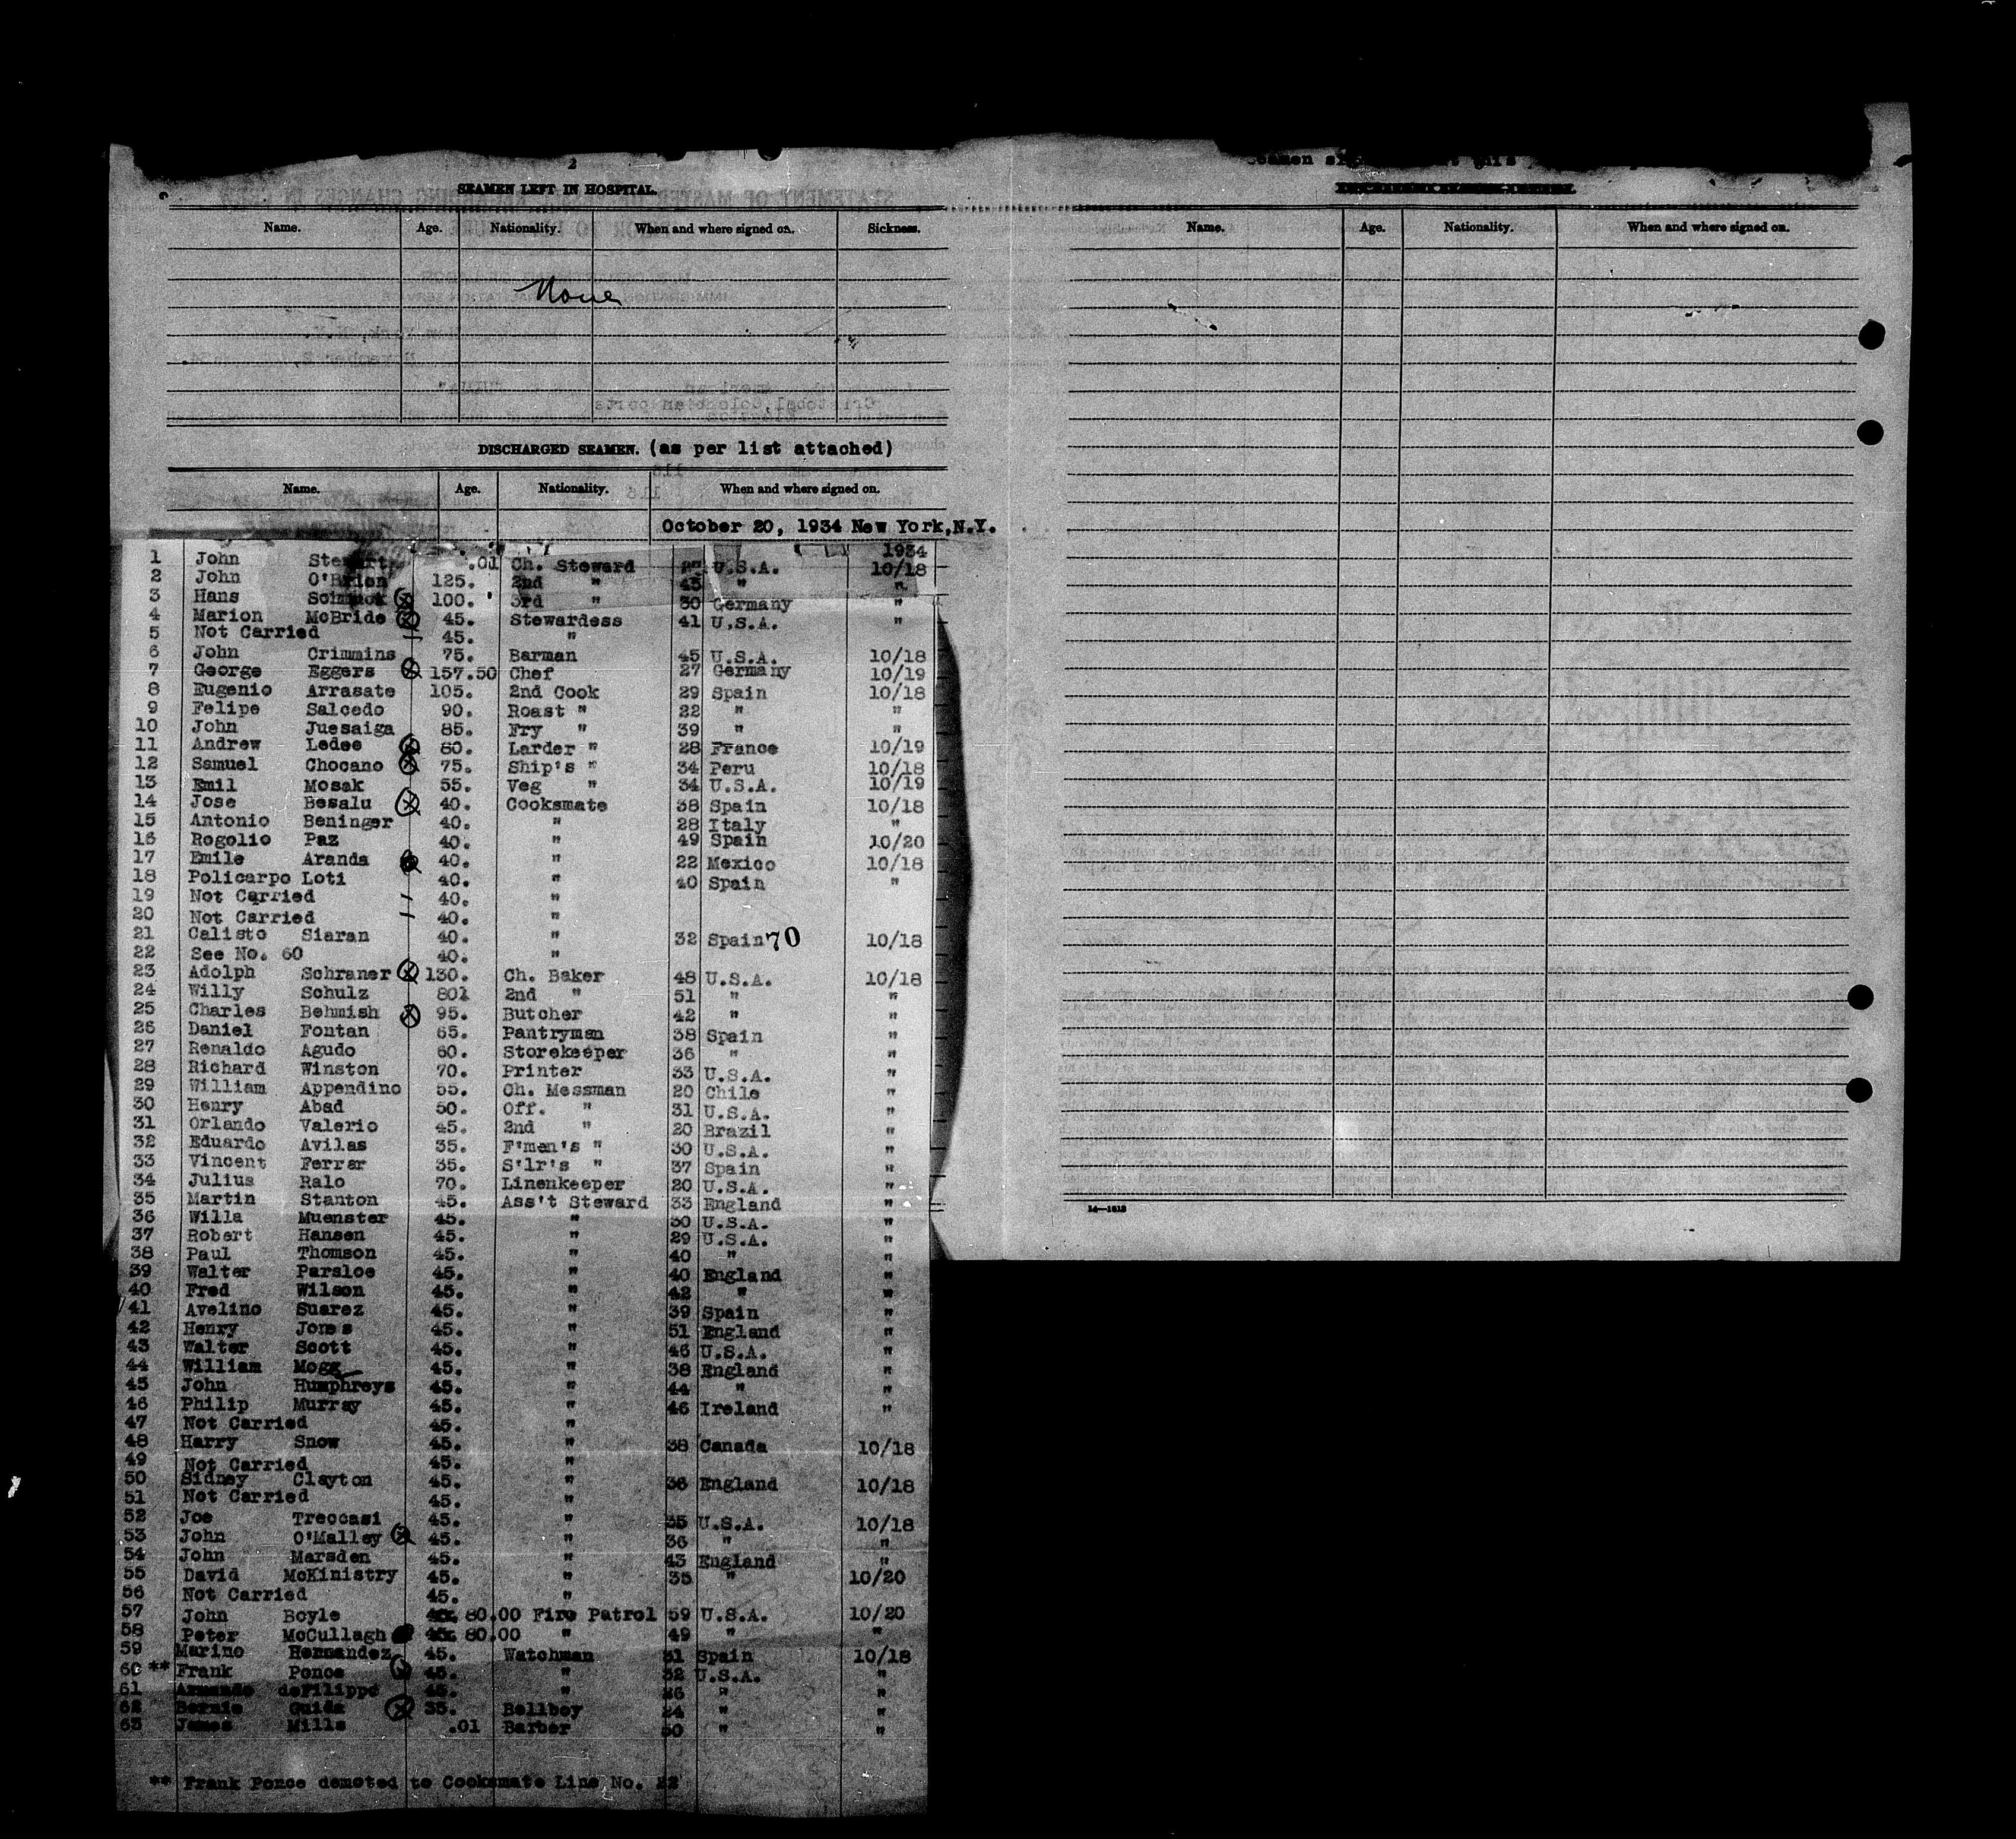 2
SEAMEN LEFT IN HOSPITAL.
Name. Age. Nationality. When and where signed on. Sickness.
None
DISCHARGED SEAMEN. (as per list attached)
Name. Age. Nationality. When and where signed on.
October 20, 1934 New York,N.Y.
1934
1 John Stewart .01 Ch. Steward U.S.A. 10/18
2 John O'Brien 125. 2nd " 45 " "
3 Hans 100. 3rd " 30 Germany "
4 Marion McBride 45. Stewardess 41 U.S.A. "
5 Not Carried 45. "
6 John Crimmins 75. Barman 45 U.S.A. 10/18
7 George Eggers 157.50 Chef 27 Germany 10/19
8 Eugenio Arrasate 105. 2nd Cook 29 Spain 10/18
9 Felipe Salcedo 90. Roast " 22 " "
10 John Juesaiga 85. Fry " 39 " "
11 Andrew Ledee 60. Larder " 28 France 10/19
12 Samuel Chocano 75. Ship's " 34 Peru 10/18
13 Emil Mosak 55. Veg " 34 U.S.A. 10/19
14 Jose Besalu 40. Cooksmate 38 Spain 10/18
15 Antonio Beninger 40. " 28 Italy "
16 Rogolio Paz 40. " 49 Spain 10/20
17 Emile Aranda 40. " 22 Mexico 10/18
18 Policarpo Loti 40. " 40 Spain "
19 Not Carried 40. "
20 Not Carried 40. "
21 Calisto Siaran 40. " 32 Spain 70 10/18
22 See No. 60 40. "
23 Adolph Schraner 130. Ch. Baker 48 U.S.A. 10/18
24 Willy Schulz 801 2nd " 51 " "
25 Charles Behmish 95. Butcher 42 " "
26 Daniel Fontan 65. Pantryman 38 Spain "
27 Renaldo Agudo 60. Storekeeper 36 " "
28 Richard Winston 70. Printer 33 U.S.A. "
29 William Appendino 55. Ch. Messman 20 Chile "
30 Henry Abad 50. Off. " 31 U.S.A. "
31 Orlando Valerio 45. 2nd " 20 Brazil "
32 Eduardo Avilas 35. F'men's " 30 U.S.A. "
33 Vincent Ferrar 35. S'lr's " 37 Spain "
34 Julius Ralo 70. Linenkeeper 20 U.S.A. "
35 Martin Stanton 45. Ass't Steward 33 England "
36 Willa Muenster 45. " 30 U.S.A. "
37 Robert Hansen 45. " 29 U.S.A. "
38 Paul Thomson 45. " 40 " "
39 Walter Parsloe 45. " 40 England "
40 Fred Wilson 45. " 42 " "
41 Avelino Suarez 45. " 39 Spain "
42 Henry Jones 45. " 51 England "
43 Walter Scott 45. " 46 U.S.A. "
44 William Mogg 45. " 38 England "
45 John Humphreys 45. " 44 " "
46 Philip Murray 45. " 46 Ireland "
47 Not Carried 45. "
48 Harry Snow 45. " 38 Canada 10/18
49 Not Carried 45. "
50 Sidney Clayton 45. " 36 England 10/18
51 Not Carried 45. "
52 Joe Treccasi 45. " 35 U.S.A. 10/18
53 John O'Malley 45. " 36 " "
54 John Marsden 45. " 43 England "
55 David McKinistry 45. " 35 " 10/20
56 Not Carried 45. "
57 John Boyle 80.00 Fire Patrol 59 U.S.A. 10/20
58 Peter McCullagh 80.00 " 49 " "
59 Marino Hernandez 45. Watchman 31 Spain 10/18
60 ** Frank Ponce 45. " 32 U.S.A. "
61 Armando deFilippo 45. " 26 " "
62 Bernie Guida 35. Bellboy 24 " "
63 James Mills .01 Barber 50 " "
** Frank Ponce demoted to Cooksmate Line No. 22
Name. Age. Nationality. When and where signed on.
14—1613